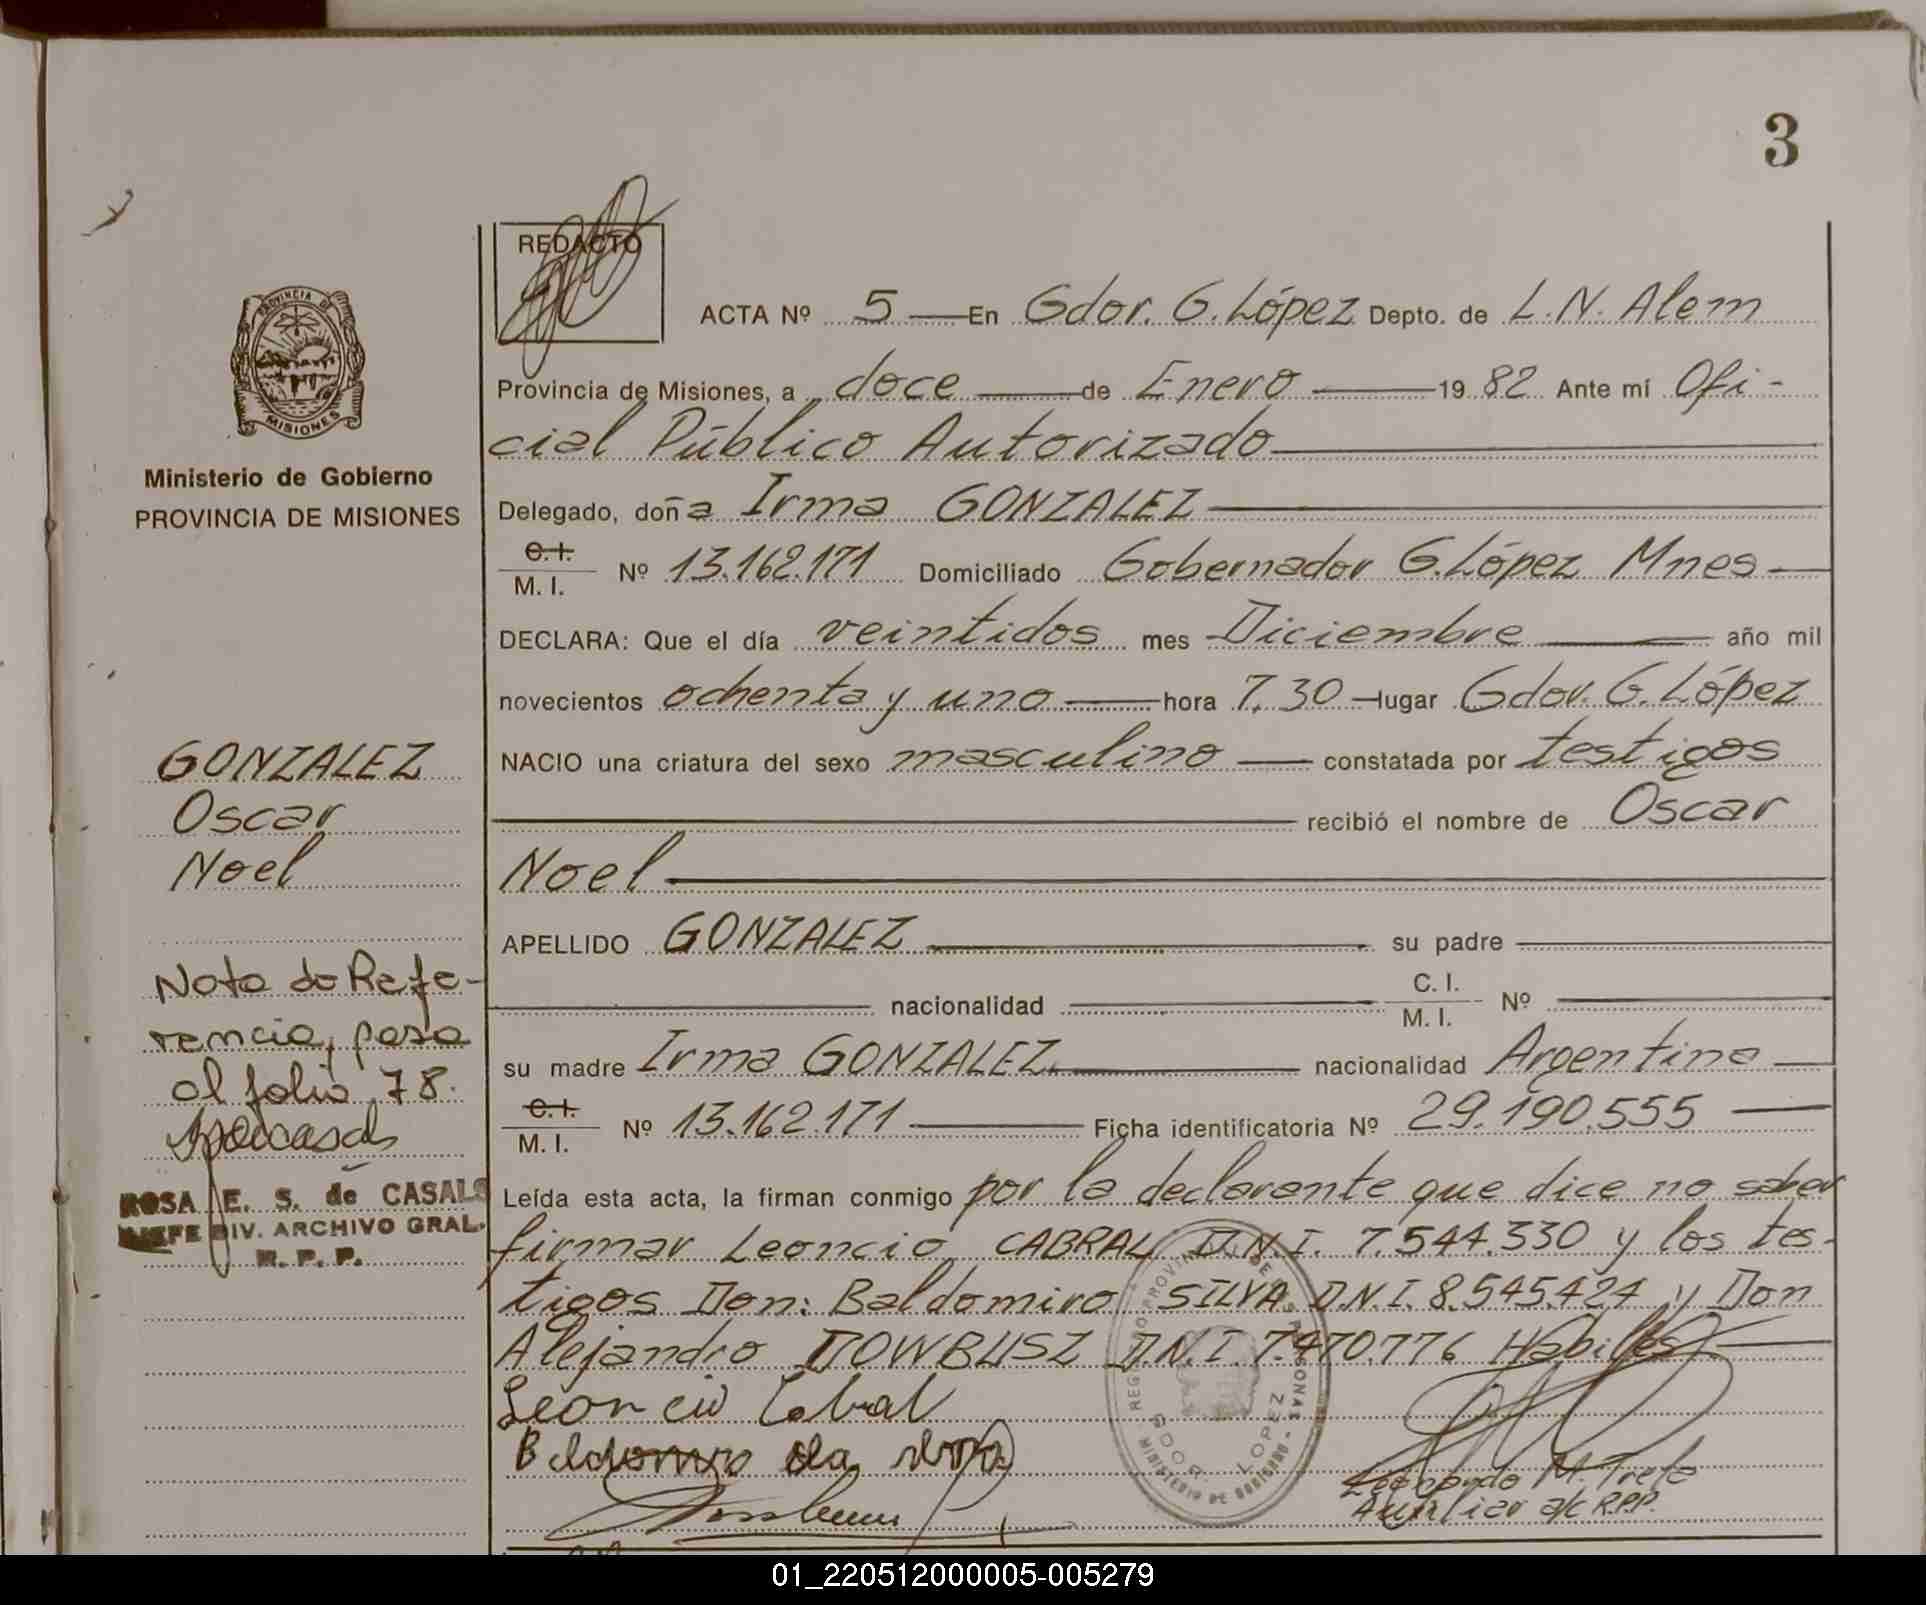 3
REDACTO
ACTA Nº 5 En Gdor. G. López Depto. de L. N. Alem
Provincia de Misiones, a doce de Enero 1982 Ante mí Ofi-
cial Público Autorizado
Delegado, doña Irma GONZALEZ
C.I. M. I. Nº 13.162.171 Domiciliado Gobernador G. López Mnes
DECLARA: Que el día veintidos mes Diciembre año mil
novecientos ochenta y uno hora 7.30 lugar Gdor. G. López
NACIO una criatura del sexo masculino constatada por testigos
recibió el nombre de Oscar
Noel
APELLIDO GONZALEZ su padre
nacionalidad C. I. M. I. Nº
su madre Irma GONZALEZ. nacionalidad Argentina
C.I. M. I. Nº 13.162.171 Ficha identificatoria Nº 29.190.555
Leída esta acta, la firman conmigo por la declarante que dice no saber
firmar Leoncio CABRAL D.N.I. 7.544.330 y los tes-
tigos Don: Baldomiro SILVA D.N.I. 8.545.424 y Don
Alejandro DOWBUSZ D.N.I. 7.470.776 Habiles
Leoncio Cabral
Leonardo M.
Auxiliar a/c R.P.P.
PROVINCIA DE
MISIONES
Ministerio de Gobierno
PROVINCIA DE MISIONES
GONZALEZ
Oscar
Noel
Nota de Refe-
rencia, pasa
al folio 78.
ROSA E. S. de CASALS
JEFE DIV. ARCHIVO GRAL.
R. P. P.
GDOR. LOPEZ
01_220512000005-005279